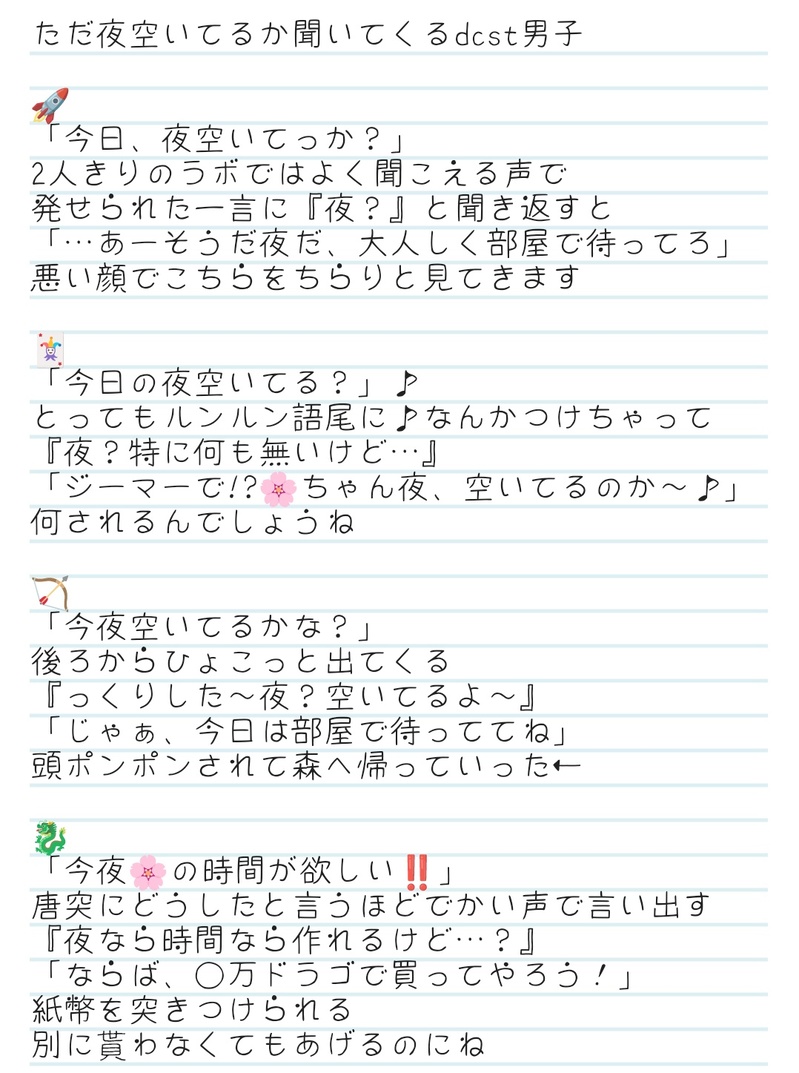 ただ夜空いてるか聞いてくるdcst男子
🚀
「今日、夜空いてっか？」
2人きりのラボではよく聞こえる声で
発せられた一言に『夜？』と聞き返すと
「…あーそうだ夜だ、大人しく部屋で待ってろ」
悪い顔でこちらをちらりと見てきます
🃏
「今日の夜空いてる？」♪
とってもルンルン語尾に♪なんかつけちゃって
『夜？特に何も無いけど…』
「ジーマーで!?🌸ちゃん夜、空いてるのか〜♪」
何されるんでしょうね
🏹
「今夜空いてるかな？」
後ろからひょこっと出てくる
『っくりした〜夜？空いてるよ〜』
「じゃぁ、今日は部屋で待っててね」
頭ポンポンされて森へ帰っていった←
🐉
「今夜🌸の時間が欲しい‼️」
唐突にどうしたと言うほどでかい声で言い出す
『夜なら時間なら作れるけど…？』
「ならば、◯万ドラゴで買ってやろう！」
紙幣を突きつけられる
別に貰わなくてもあげるのにね